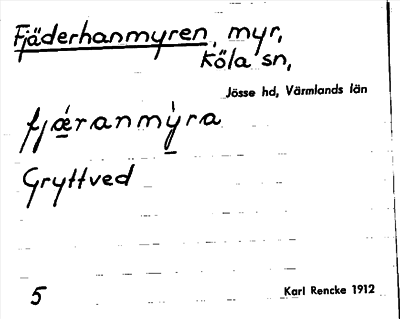 Fjäderhanmyren, myr,
Köla sn,
Jösse hd, Värmlands län
fjǽranmỳra
Gryttved
5
Karl Rencke 1912